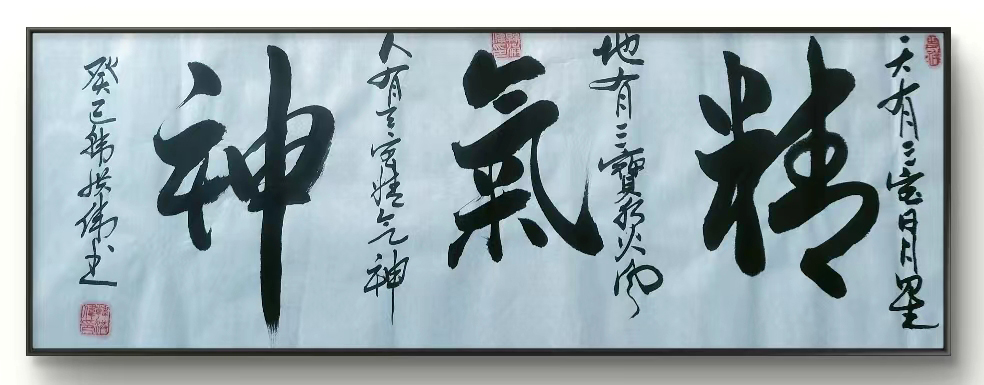 天有三宝日月星
精
地有三寶水火風
氣
人有三宝精气神
神
癸巳韩洪伟书